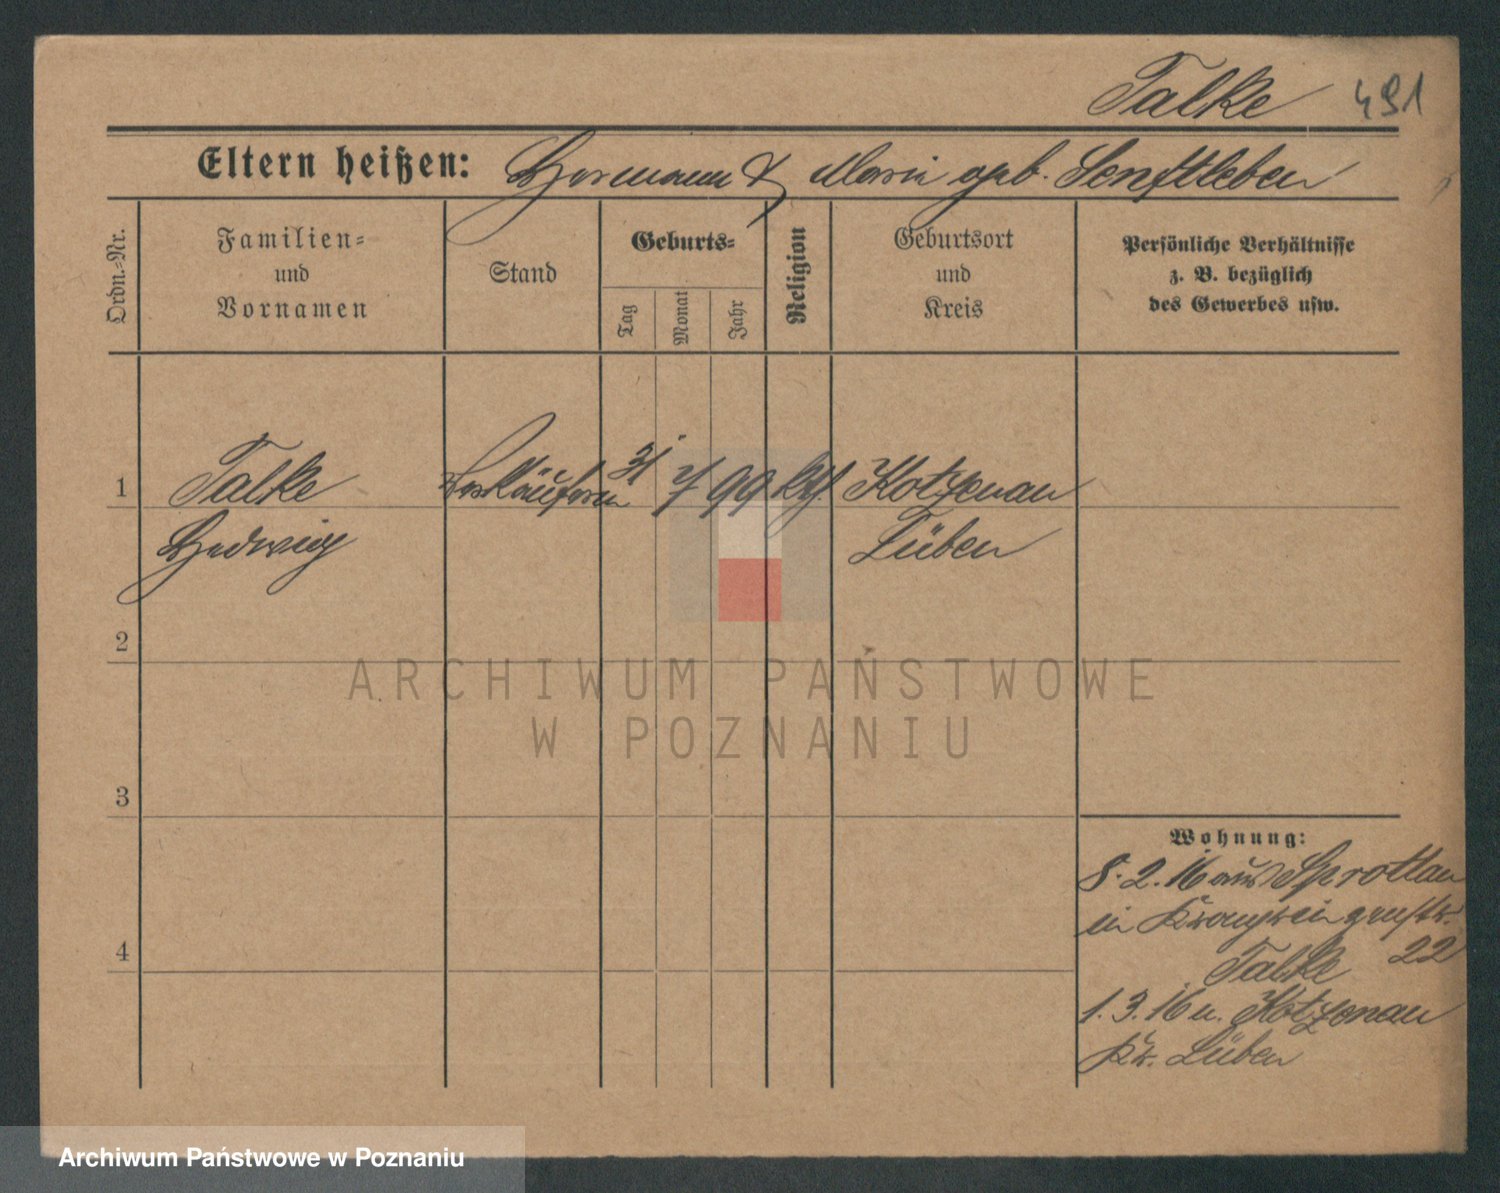 Talke 491
Eltern heißen: Hermann & Marie geb. Senftleben
Ordn.-Nr.
Familien-
und
Vornamen
Stand
Geburts-
Tag
Monat
Jahr
Religion
Geburtsort
und
Kreis
Persönliche Verhältnisse
z. B. bezüglich
des Gewerbes usw.
1 Talke Verkäuferin 31 7 99 kth Kotzenau
Hedwig Lüben
2
3
4
Wohnung:
8. 2. 16 aus Sprottau
in
22
Talke
1. 3. 16 n. Kotzenau
Kr. Lüben
ARCHIWUM PAŃSTWOWE
W POZNANIU
Archiwum Państwowe w Poznaniu